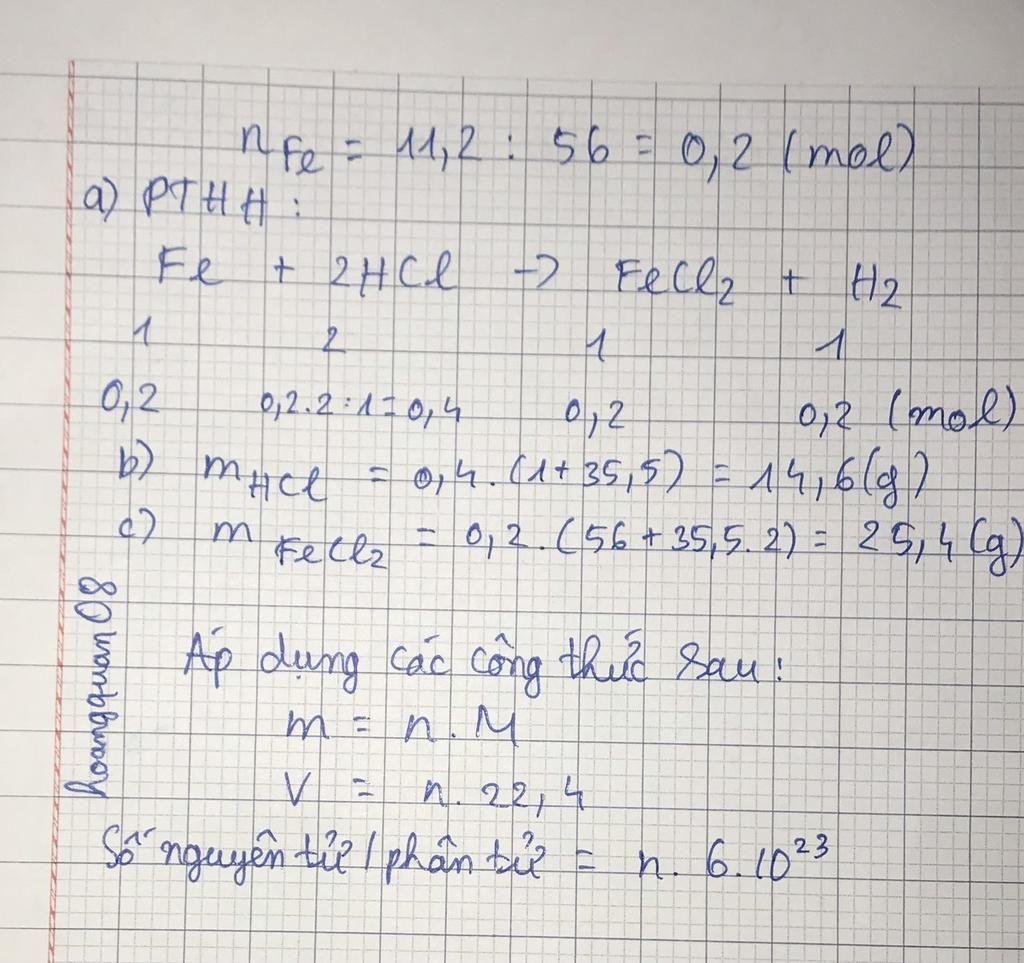 nFe = 11,2 : 56 = 0,2 (mol)
a) PTHH :
Fe + 2HCl -> FeCl2 + H2
1 2 1 1
0,2 0,2.2:1=0,4 0,2 0,2 (mol)
b) mHCl = 0,4.(1+35,5) = 14,6(g)
c) mFeCl2 = 0,2.(56+35,5.2) = 25,4(g)
Áp dụng các công thức sau:
m = n.M
V = n.22,4
Số nguyên tử/phân tử = n. 6.10²³
hoangquan08